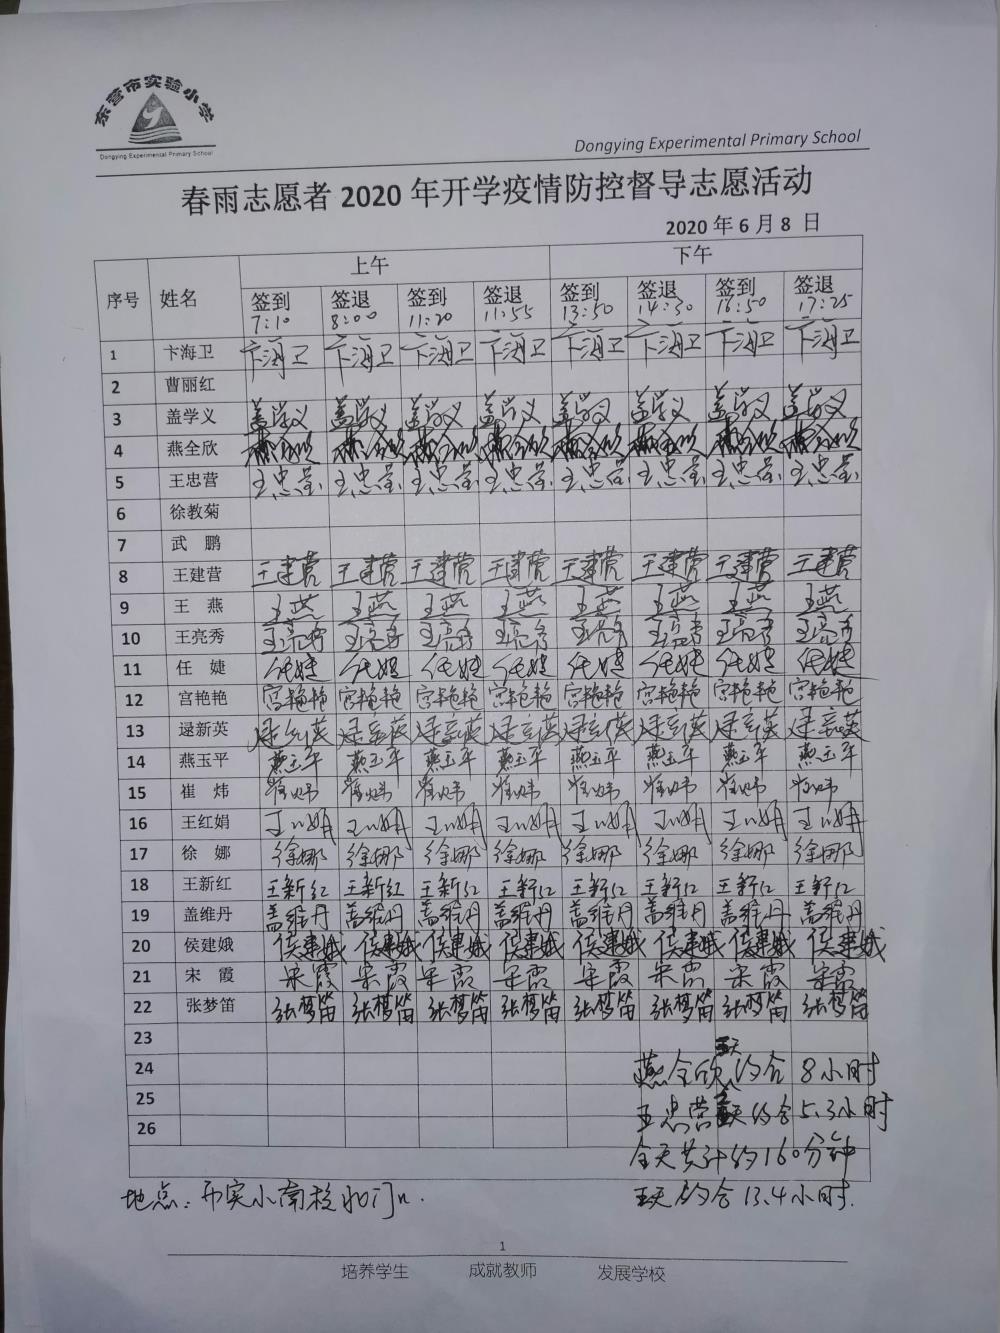 东营市实验小学
Dongying Experimental Primary School
Dongying Experimental Primary School
春雨志愿者 2020 年开学疫情防控督导志愿活动
2020 年 6 月 8 日
序号 姓名 上午 下午
签到 签退 签到 签退 签到 签退 签到 签退
7:10 8:00 11:20 11:55 13:50 14:30 16:50 17:25
1 卞海卫 卞海卫 卞海卫 卞海卫 卞海卫 卞海卫 卞海卫 卞海卫 卞海卫
2 曹丽红
3 盖学义 盖学义 盖学义 盖学义 盖学义 盖学义 盖学义 盖学义 盖学义
4 燕全欣 燕全欣 燕全欣 燕全欣 燕全欣 燕全欣 燕全欣 燕全欣 燕全欣
5 王忠营 王忠营 王忠营 王忠营 王忠营 王忠营 王忠营 王忠营 王忠营
6 徐教菊
7 武 鹏
8 王建营 王建营 王建营 王建营 王建营 王建营 王建营 王建营 王建营
9 王 燕 王燕 王燕 王燕 王燕 王燕 王燕 王燕 王燕
10 王亮秀 王亮秀 王亮秀 王亮秀 王亮秀 王亮秀 王亮秀 王亮秀 王亮秀
11 任 婕 任婕 任婕 任婕 任婕 任婕 任婕 任婕 任婕
12 宫艳艳 宫艳艳 宫艳艳 宫艳艳 宫艳艳 宫艳艳 宫艳艳 宫艳艳 宫艳艳
13 逯新英 逯新英 逯新英 逯新英 逯新英 逯新英 逯新英 逯新英 逯新英
14 燕玉平 燕玉平 燕玉平 燕玉平 燕玉平 燕玉平 燕玉平 燕玉平 燕玉平
15 崔 炜 崔炜 崔炜 崔炜 崔炜 崔炜 崔炜 崔炜 崔炜
16 王红娟 王红娟 王红娟 王红娟 王红娟 王红娟 王红娟 王红娟 王红娟
17 徐 娜 徐娜 徐娜 徐娜 徐娜 徐娜 徐娜 徐娜 徐娜
18 王新红 王新红 王新红 王新红 王新红 王新红 王新红 王新红 王新红
19 盖维丹 盖维丹 盖维丹 盖维丹 盖维丹 盖维丹 盖维丹 盖维丹 盖维丹
20 侯建娥 侯建娥 侯建娥 侯建娥 侯建娥 侯建娥 侯建娥 侯建娥 侯建娥
21 宋 霞 宋霞 宋霞 宋霞 宋霞 宋霞 宋霞 宋霞 宋霞
22 张梦笛 张梦笛 张梦笛 张梦笛 张梦笛 张梦笛 张梦笛 张梦笛 张梦笛
23
24 燕全欣五天约合 8小时
25 王忠营 天约合 5.3小时
26 全天共计约160分钟
地点：市实小南校北门。 五天约合13.4小时.
1
培养学生 成就教师 发展学校